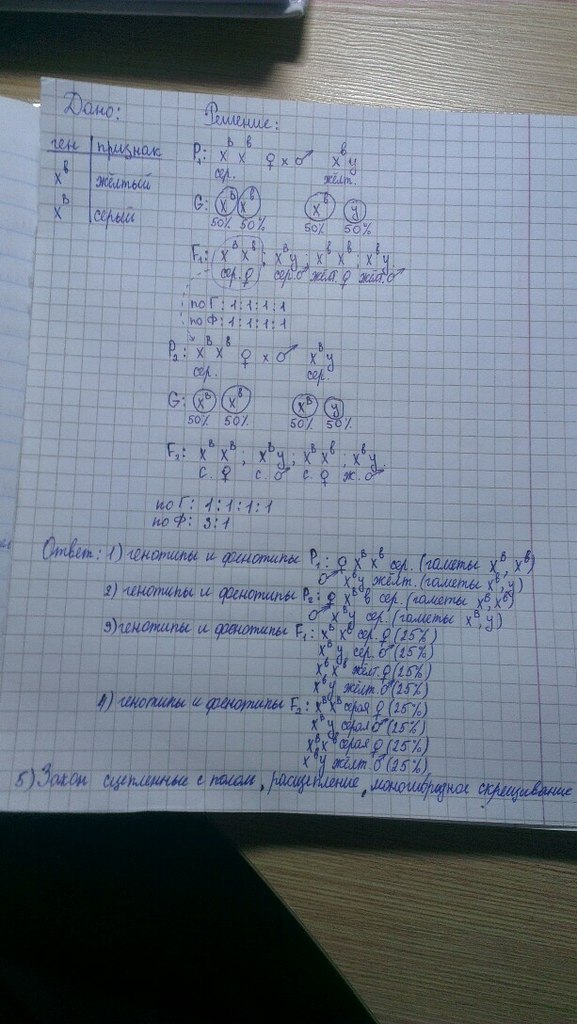 Дано: Решение:
ген признак
Xᵇ жёлтый
Xᴮ серый
P₁: Xᴮ Xᵇ ♀ × ♂ Xᵇ y
сер. жёлт.
G: Xᴮ Xᵇ Xᵇ y
50% 50% 50% 50%
F₁: Xᴮ Xᵇ; Xᴮ y; Xᵇ Xᵇ; Xᵇ y
сер. ♀ сер. ♂ жёлт. ♀ жёлт. ♂
по Г: 1:1:1:1
по Ф: 1:1:1:1
P₂: Xᴮ Xᵇ ♀ × ♂ Xᴮ y
сер. сер.
G: Xᴮ Xᵇ Xᴮ y
50% 50% 50% 50%
F₂: Xᴮ Xᴮ; Xᴮ y; Xᴮ Xᵇ; Xᵇ y
с. ♀ с. ♂ с. ♀ ж. ♂
по Г: 1:1:1:1
по Ф: 3:1
Ответ: 1) генотипы и фенотипы P₁: ♀ Xᴮ Xᵇ сер. (гаметы Xᴮ, Xᵇ)
♂ Xᵇ y жёлт. (гаметы Xᵇ, y)
2) генотипы и фенотипы P₂: ♀ Xᴮ ᵇ сер. (гаметы Xᴮ, Xᵇ)
♂ Xᴮ y сер. (гаметы Xᴮ, y)
3) генотипы и фенотипы F₁: Xᴮ Xᵇ сер. ♀ (25%)
Xᴮ y сер. ♂ (25%)
Xᵇ Xᵇ жёлт. ♀ (25%)
Xᵇ y жёлт. ♂ (25%)
4) генотипы и фенотипы F₂: Xᴮ Xᴮ серая ♀ (25%)
Xᴮ y серая ♂ (25%)
Xᴮ Xᵇ серая ♀ (25%)
Xᵇ y жёлт. ♂ (25%)
5) Закон сцепленные с полом, расщепление, моногибридное скрещивание